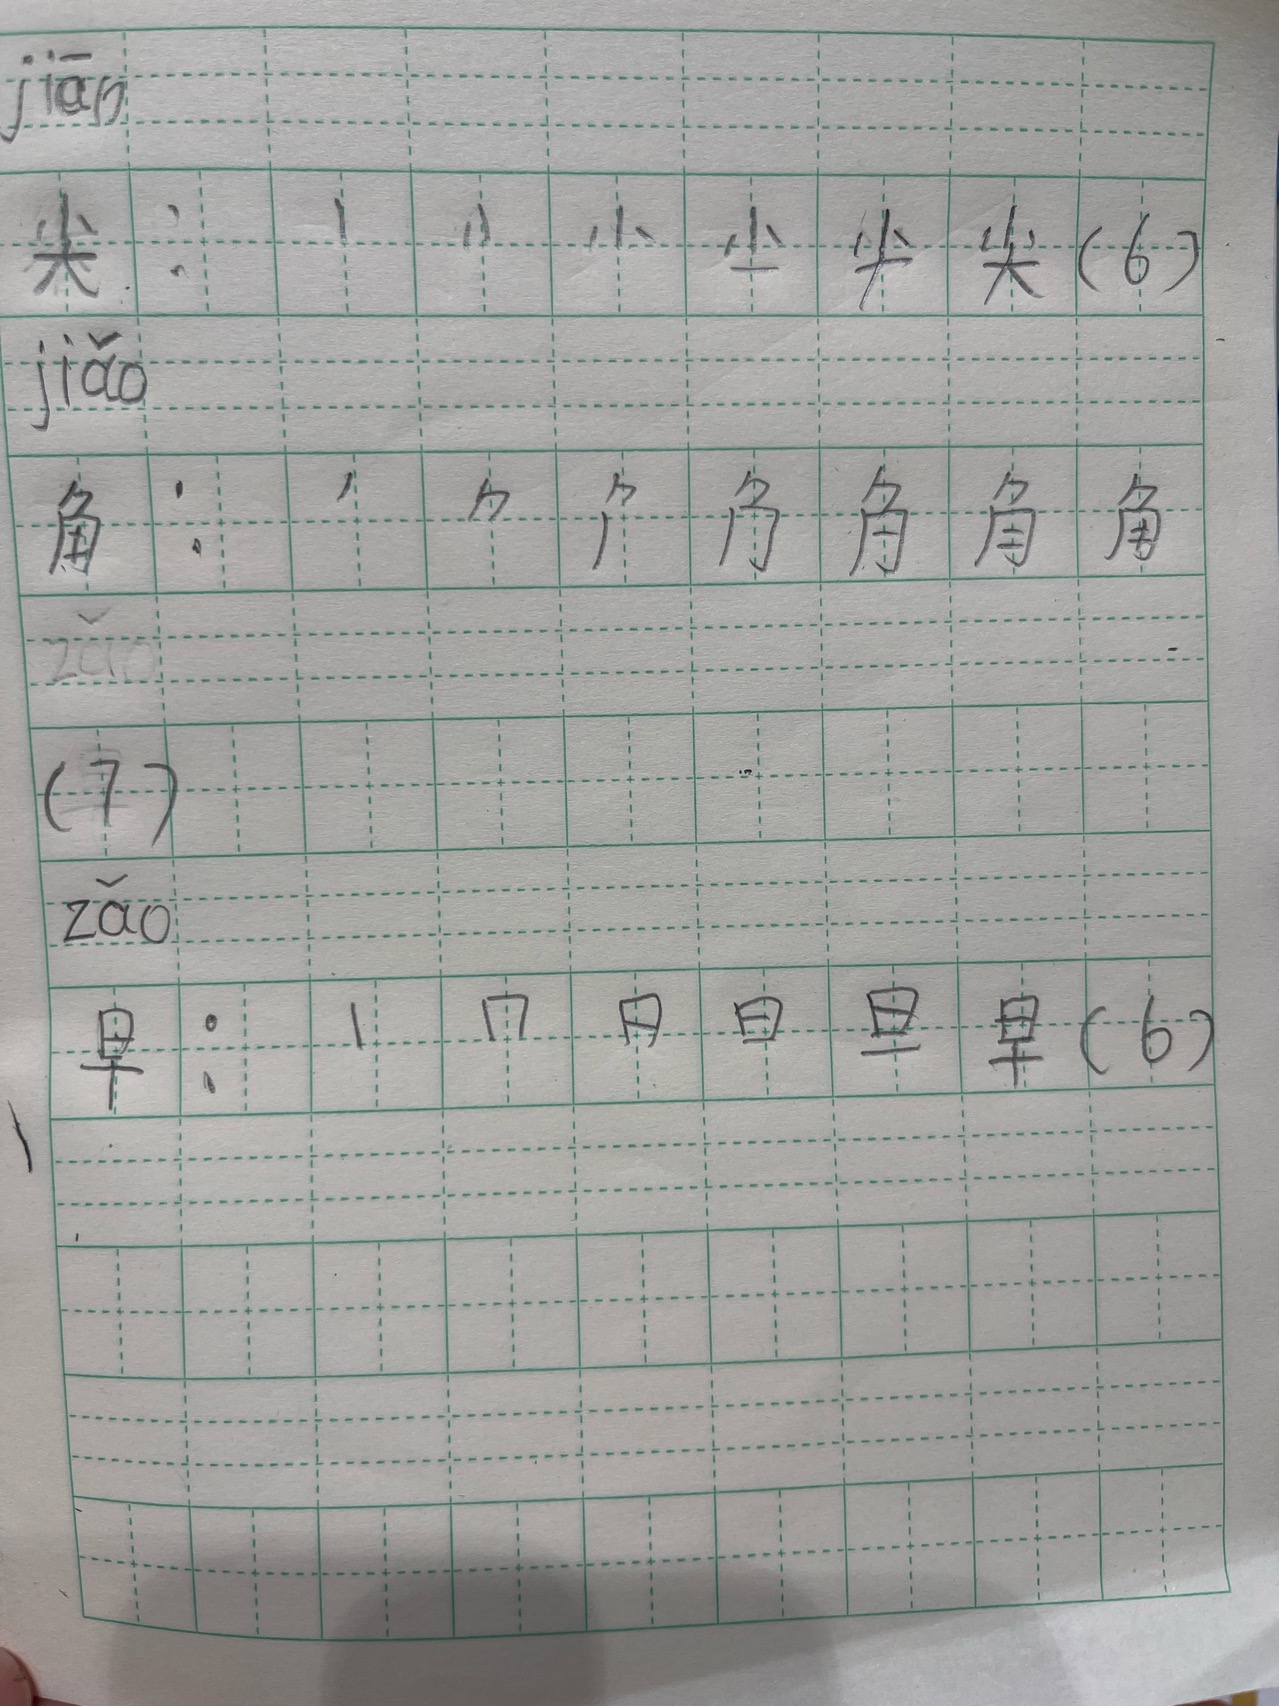 jiān
尖：丨 小 尖 尖(6)
jiǎo
角：丿 ⺈ 角 角 角
zǎo
(7)
zǎo
早：丨 冂 日 日 旦 早(6)